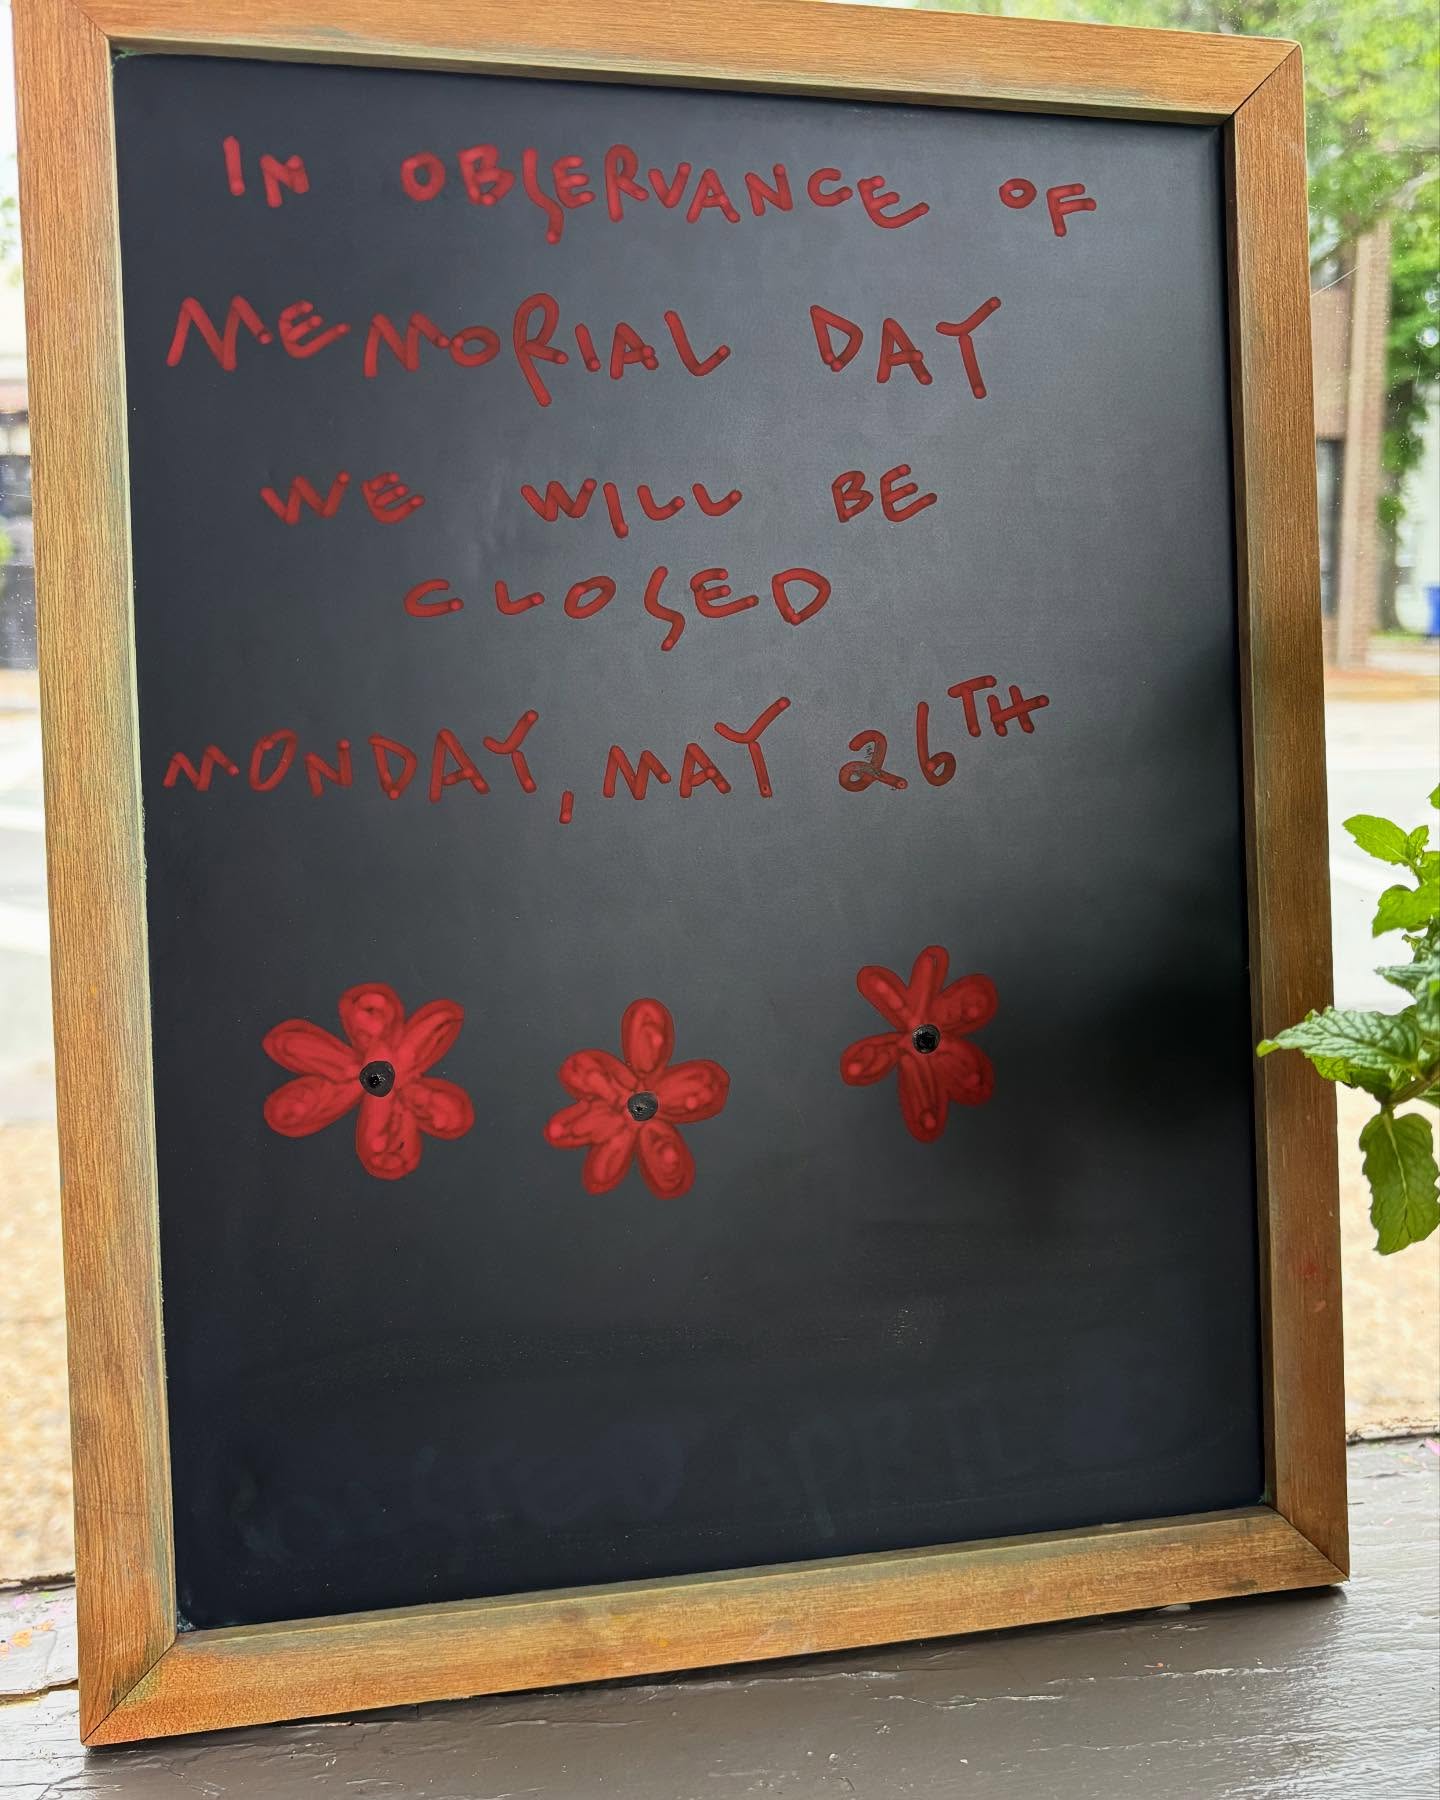 IN OBSERVANCE OF
MEMORIAL DAY
WE WILL BE
CLOSED
MONDAY, MAY 26TH
APRIL